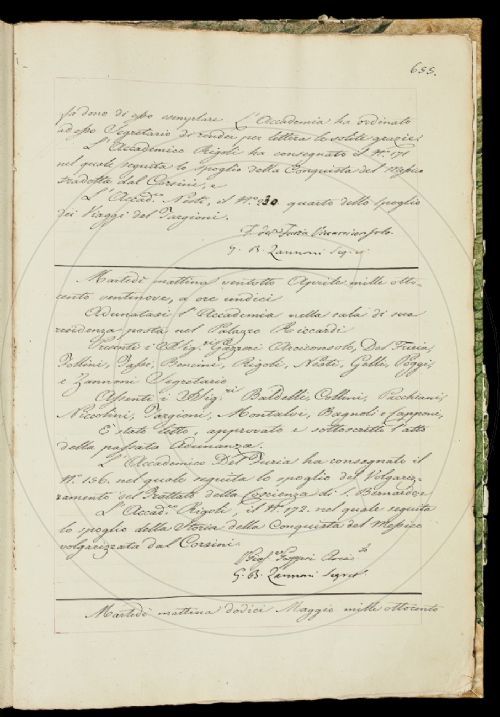 655.
so dono di esso esemplare. L'Accademia ha ordinato
ad esso Segretario di render per lettera le solite grazie.
L'Accademico Rigoli ha consegnato il N.º 171
nel quale seguita lo spoglio della Conquista del Messico
tradotta dal Corsini, e
L'Accad.co Nesti, il N.º 130 quarto dello spoglio
dei Viaggi del Targioni.
F. del Furia
G. B. Zannoni Segr.
Martedì mattina ventotto Aprile mille otto-
cento ventinove, a ore undici
Adunatasi l'Accademia nella sala di sua
residenza posta nel Palazzo Riccardi
Presenti i Sig.ri Gazzeri Arciconsolo, Del Furia,
Follini, Tassi, Bencini, Rigoli, Nesti, Gelli, Poggi,
e Zannoni Segretario
Assenti i Sig.ri Baldelli, Collini, Pucciani,
Niccolini, Targioni, Montalvi, Bagnoli e Capponi,
È stato letto, approvato e sottoscritto l'atto
della passata Adunanza.
L'Accademico Del Furia ha consegnato il
N.º 156. nel quale seguita lo spoglio del Volgariz-
zamento del Trattato della Coscienza di S. Bernardo; e
L'Accad.co Rigoli, il N.º 172. nel quale seguita
lo spoglio della Storia della Conquista del Messico
volgarizzata dal Corsini.
Gius. Gazzeri Arcic.
G. B. Zannoni Segret.
Martedì mattina dodici Maggio mille ottocento